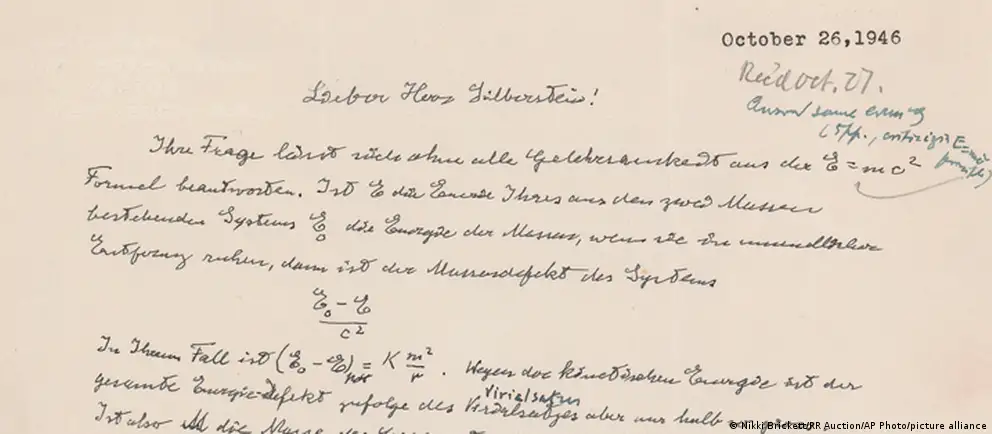 October 26,1946
Rec'd Oct. 27.
Answ'd same evening
(5pp., E=mc²
Lieber Herr Silberstein!
Ihre Frage lässt sich ohne alle Gelehrsamkeit aus der E = mc²
Formel beantworten. Ist E die Energie Ihres aus den zwei Massen
bestehenden Systems E₀ die Energie der Massen, wenn sie in unendlicher
Entfernung ruhen, dann ist der Massendefekt des Systems
E₀ - E
c²
In Ihrem Fall ist (E₀ - E) = K m²/r. Wegen der kinetischen Energie ist der
pot
Virialsatzes
gesamte Energie-Defekt zufolge des Virialsatzes aber nur halb so gross.
Ist also M die Masse
© Nikki Brickett/RR Auction/AP Photo/picture alliance